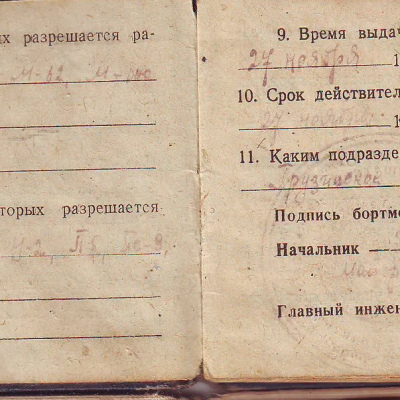 х разрешается ра-
М-62, М-
торых разрешается
9. Время выдач
27 ноября 1
10. Срок действител
27 ноября 1
11. Каким подразде
Грузинское
Подпись бортме
Начальник
Главный инжен